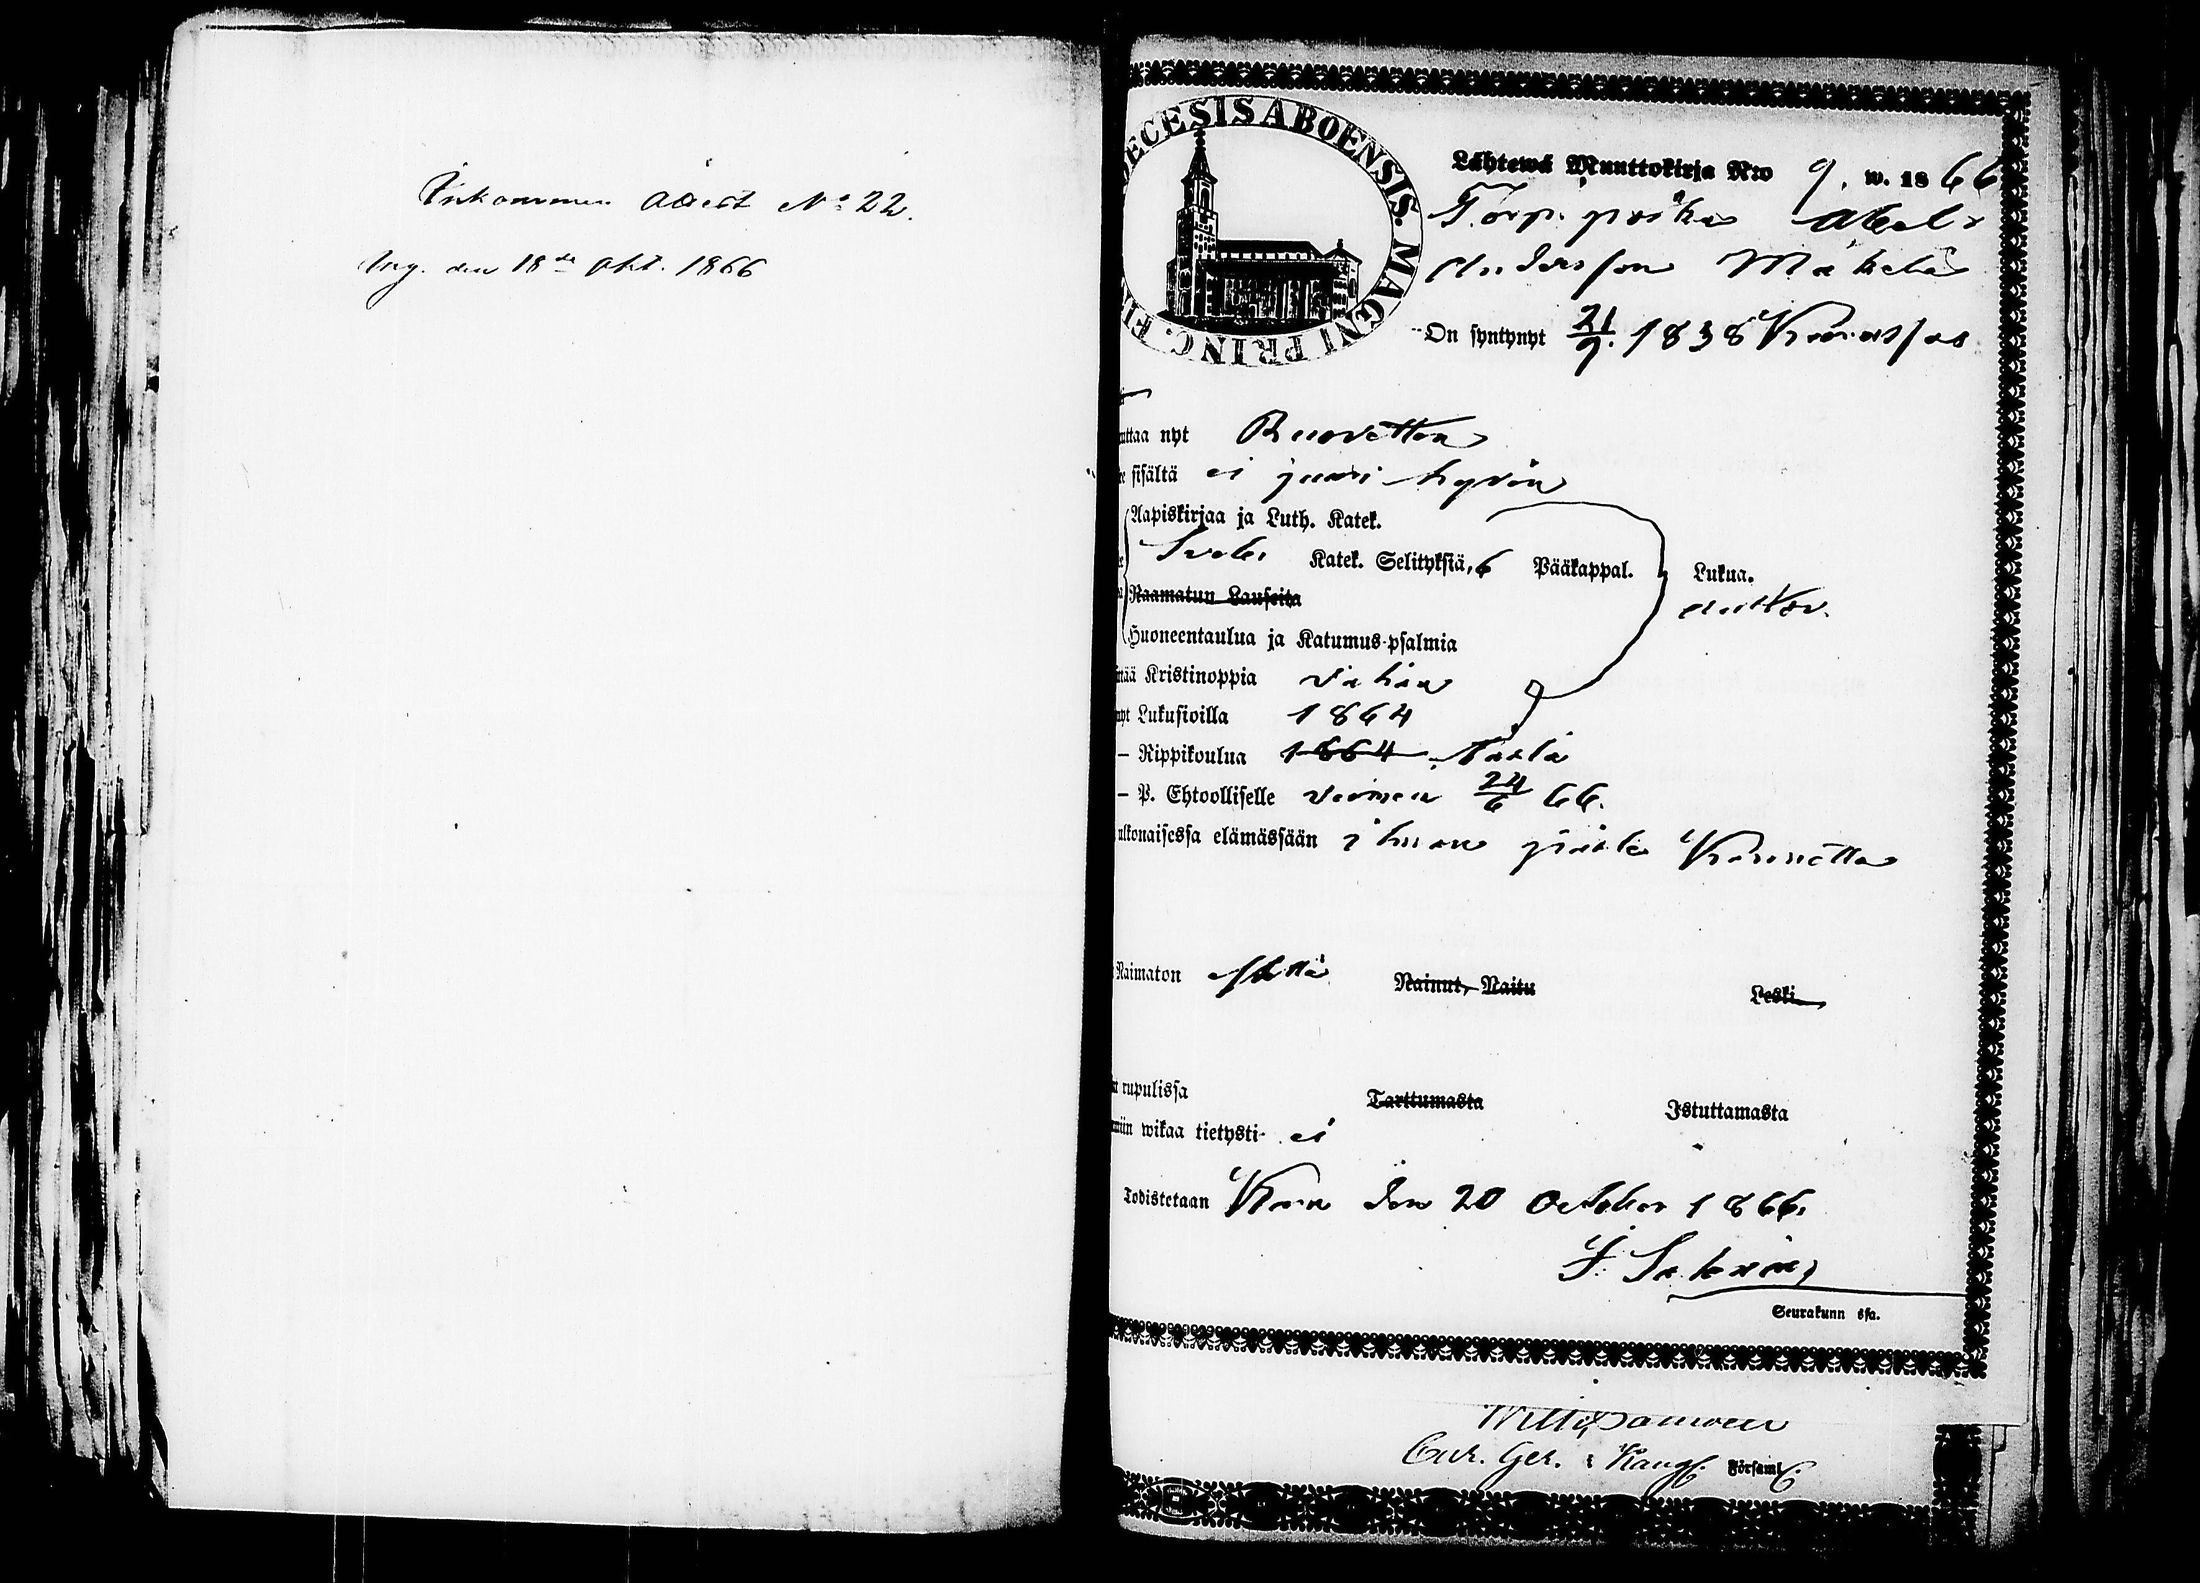 Inkommen attest No 22.
Ing. den 18de Okt. 1866
DECESIS ABOENSIS. MAGNI PRINC. FI
Lähtewä Muuttokirja N:o 9. w. 1866
Torp. poika Abel
Andersson Mäkelä
On syntynyt 21/9. 1838 Kurussa
uttaa nyt Ruovetten
sisältä ei juuri hyvin
Aapiskirjaa ja Luth. Katek.
Sveb. Katek. Selityksiä, 6 Pääkappal. Lukua.
auttav.
Raamatun Lauseita
Huoneentaulua ja Katumus-psalmia
ttää Kristinoppia vähän
nyt Lukusioilla 1864
– Rippikoulua 1864 käulä
– P. Ehtoolliselle viimen 24/6 66.
ulkonaisessa elämässään ilman päälle Kannetta
Naimaton Mieliä Nainut, Naitu Leski
rupulissa Tarttumasta Istuttamasta
miin wikaa tietysti- ei
Todistetaan Kuru den 20 October 1866.
F. Salenius
Seurakunn ssa.
Cur. Ger. i Kang Församl